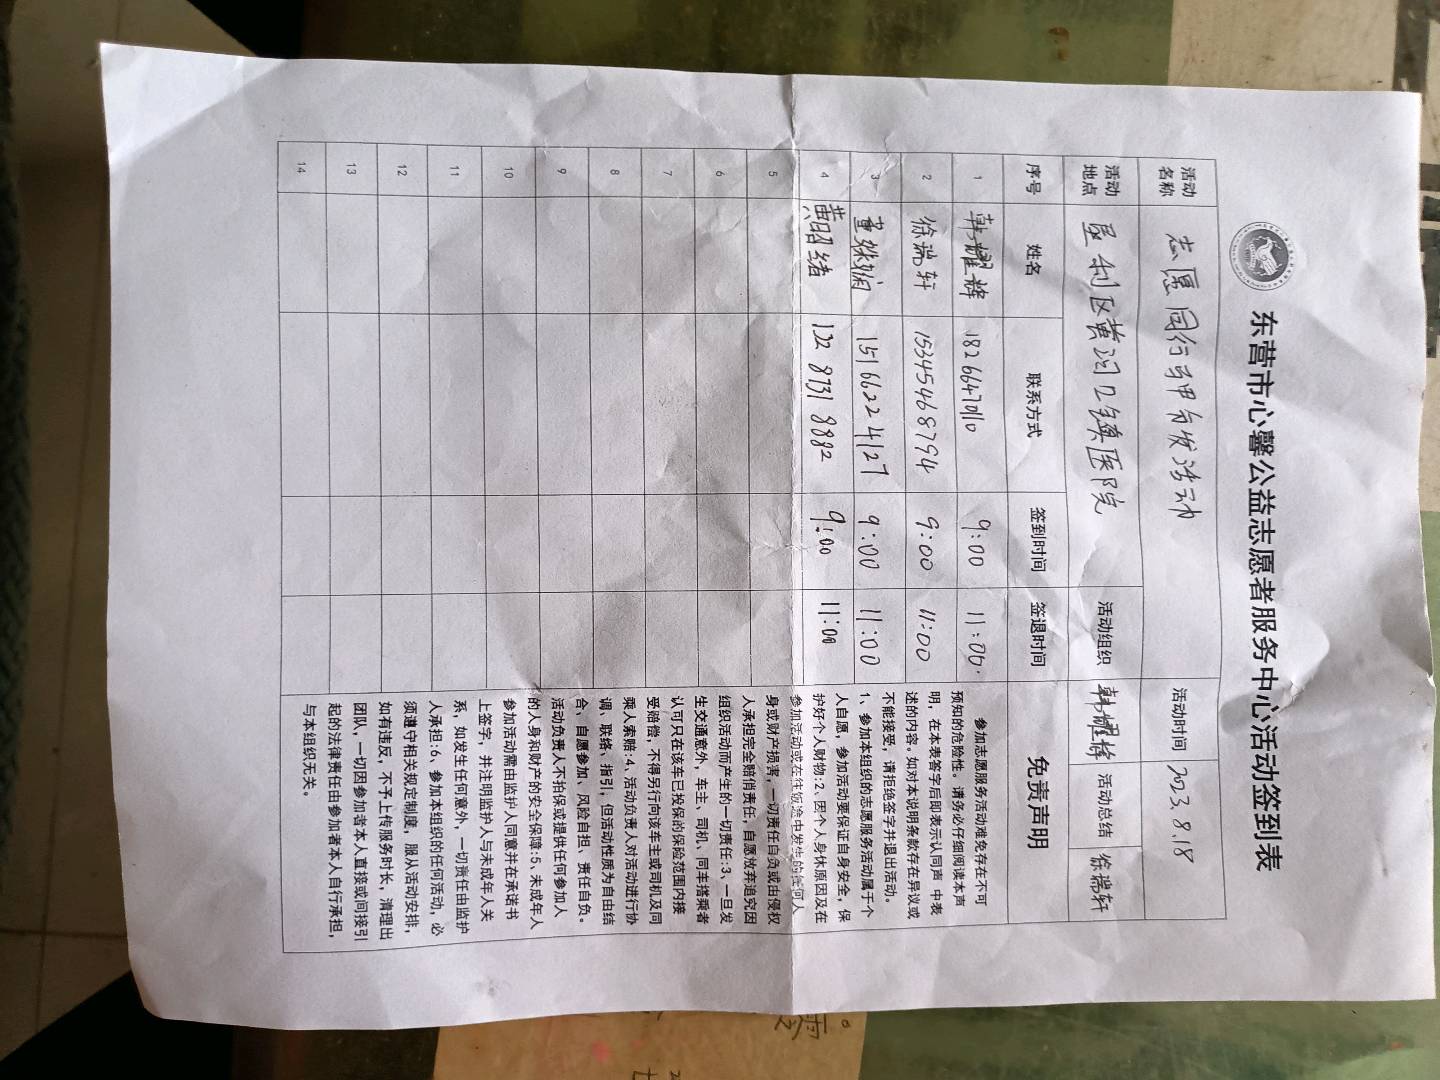 东营市心馨公益志愿者服务中心活动签到表
活动名称 志愿同行 活动 活动时间 2023.8.18
活动地点 垦利区黄河口镇医院 活动组织 韩耀辉 活动总结 徐瑞轩
序号 姓名 联系方式 签到时间 签退时间 免责声明
1 韩耀辉 9:00 11:00.
2 徐瑞轩 15345468794 9:00 11:00
3 董 15166224127 9:00 11:00
4 黄昭绪 132 8731 8882 9:00 11:00
5
6
7
8
9
10
11
12
13
14
参加志愿服务活动难免存在不可
预知的危险性。请务必仔细阅读本声
明，在本表签字后即表示认同声 中表
述的内容。如对本说明条款存在异议或
不能接受，请拒绝签字并退出活动。
1、参加本组织的志愿服务活动属于个
人自愿，参加活动要保证自身安全，保
护好个人财物:2、因个人身休原因及在
参加活动或在往饭途中发生的任何人
身或财产损害，一切责任自负或由侵权
人承担完全赔偿责任，自愿放弃追究因
组织活动而产生的一切责任:3、一旦发
生交通意外，车主、司机、同车搭乘者
认可只在该车已投保的保险范围内接
受赔偿，不得另行向该车主或司机及同
乘人索赔:4、活动负责人对活动进行协
调、联络、指引，但活动性质为自由结
合、自愿参加、风险自担、责任自负。
活动负责人不拍保或提供任何参加人
的人身和财产的安全保障:5、未成年人
参加活动需由监护人同意并在承诺书
上签字，并注明监护人与未成年人关
系，如发生任何意外，一切责任由监护
人承担:6、参加本组织的任何活动，必
须遵守相关规定制度，服从活动安排，
如有违反，不予上传服务时长，清理出
团队，一切因参加者本人直接或间接引
起的法律责任由参加者本人自行承担，
与本组织无关。